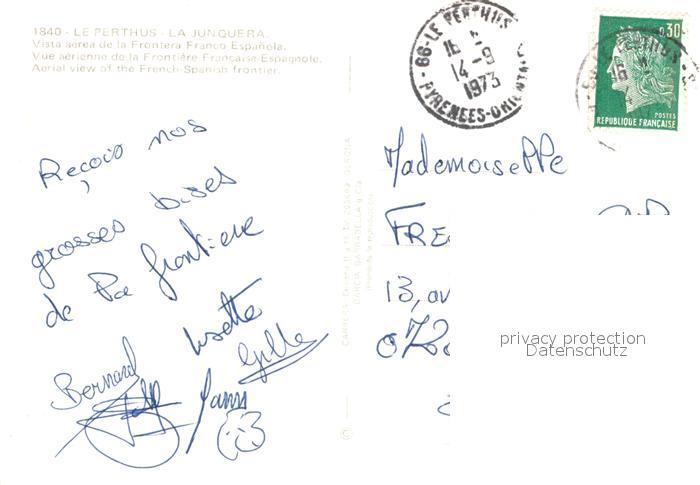 1840 - LE PERTHUS - LA JUNQUERA.
Vista aérea de la Frontera Franco Española.
Vue aérienne de la Frontière Française Espagnole.
Aerial view of the French-Spanish frontier.
66-LE PERTHUS
16 H
14-9
1973
PYRENEES-ORIENTALES
0,30
POSTES
REPUBLIQUE FRANÇAISE
Reçois nos
grosses bises
de la frontiere
Lisette
Bernard
Gille
Mademoiselle
FRE
13, av
privacy protection
Datenschutz